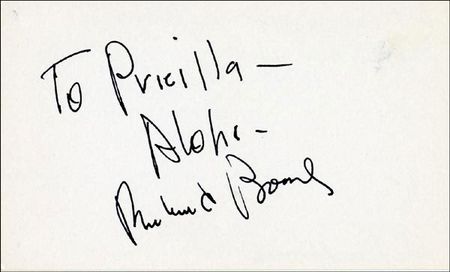 To Pricilla—
Aloha—
Richard Boone